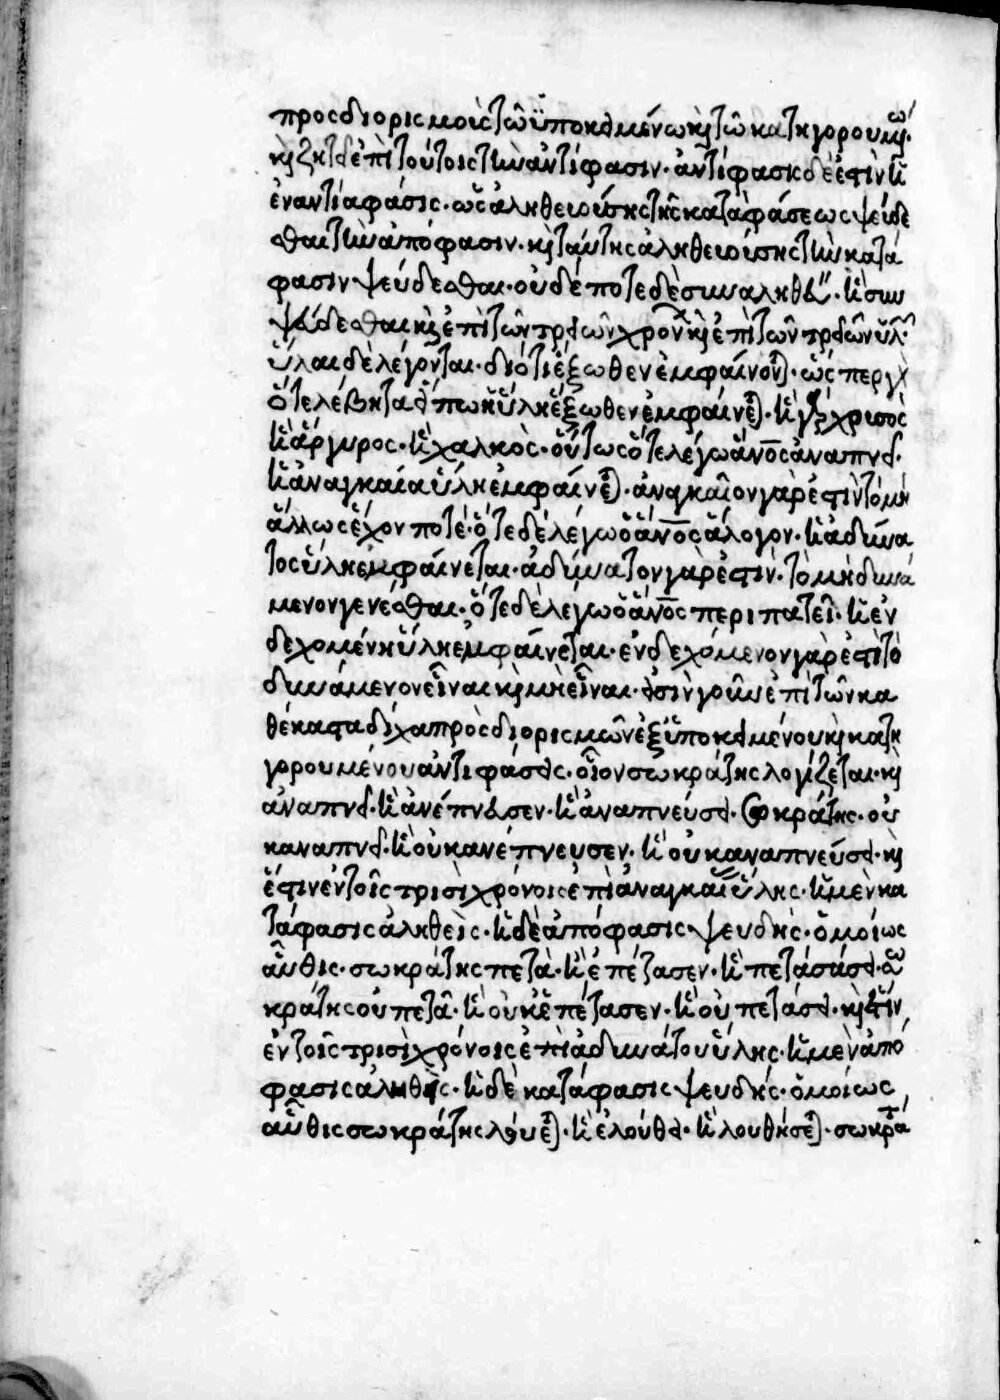 προσδιορισμοὶς τῶ ὑποκειμένω κỳ τῶ κατηγορουμένω.
κỳ ζητεῖ ἐπὶ τούτοις τὴν ἀντίφασιν. ἀντίφασις δέ ἐστὶν ἡ
ἐναντία φάσις. ὡς ἀληθευούσης τῆς καταφάσεως, ψεύδε
σθαι τὴν ἀπόφασιν. κỳ ταύτης ἀληθευούσης τὴν κατά
φασιν ψεύδεσθαι. οὐδέποτε δὲ συναληθεύειν. ἢ συμ
ψεύδεσθαι κỳ ἐπὶ τῶν τριῶν χρόνων κỳ ἐπὶ τῶν τριῶν ὑλῶν.
ὗλαι δὲ λέγονται. διότι ἔξωθεν ἐμφαίνονται. ὥσπερ γὰρ
ὅτε λέβητα εἴπω ἡ ὕλη ἔξωθεν ἐμφαίνεται. ἢ γὰρ χρυσὸς
ἢ ἄργυρος. ἢ χαλκὸς. οὕτως ὅτε λέγω ἄνος ἀναπνεῖ.
ἡ ἀναγκαία ὕλη ἐμφαίνεται. ἀναγκαῖον γάρ ἐστὶν τὸ μὴ
ἄλλως ἔχον ποτέ. ὅτε δὲ λέγω ὁ ἄνος ἄλογον. ἡ ἀδύνα
τος ὕλη ἐμφαίνεται. ἀδύνατον γὰρ ἐστὶν. τὸ μὴ δυνά
μενον γενέσθαι. ὅτε δὲ λέγω ὁ ἄνος περιπατεῖ. ἡ ἐν
δεχομένη ὕλη ἐμφαίνεται. ἐνδεχόμενον γαρ ἐστὶ τὸ
δυνάμενον εἶναι κỳ μὴ εἶναι. εἰσὶν γοῦν ἐπὶ τῶν κα
θέκαστα δίχα προσδιορισμῶν ἐξ ὑποκειμένου κỳ κατη
γορουμένου ἀντιφάσεις. οἷον σωκράτης λογίζεται. κỳ
ἀναπνεῖ. ἢ ἀνέπνευσεν. ἢ ἀναπνεύσει. σωκράτης. οὐ
κ αναπνεῖ. ἢ οὐκ ανέπνευσεν. ἢ οὐκ αναπνεύσει. κỳ
ἔστιν ἐν τοῖς τρισὶ χρόνοις ἐπὶ ἀναγκαίας ὕλης. ἡ μὲν κα
τάφασις ἀληθεὶς. ἡ δὲ ἀπόφασις ψευδὴς. ὁμοίως
αὖθις. σωκράτης πετᾶ. ἢ ἐπέτασεν. ἢ πετάσει. σω
κράτης οὐ πετᾶ. ἢ οὐκ ἐπέτασεν. ἢ οὐ πετάσει. κỳ ἔστιν
ἐν τοῖς τρισὶ χρόνοις ἐπὶ ἀδυνάτου ὕλης. ἡ μὲν ἀπό
φασις ἀληθὴς. ἡ δὲ κατάφασις ψευδής. ὁμοίως
αὖθις σωκράτης λούεται. ἢ ἐλούθει. ἢ λουθήσεται. σωκρά